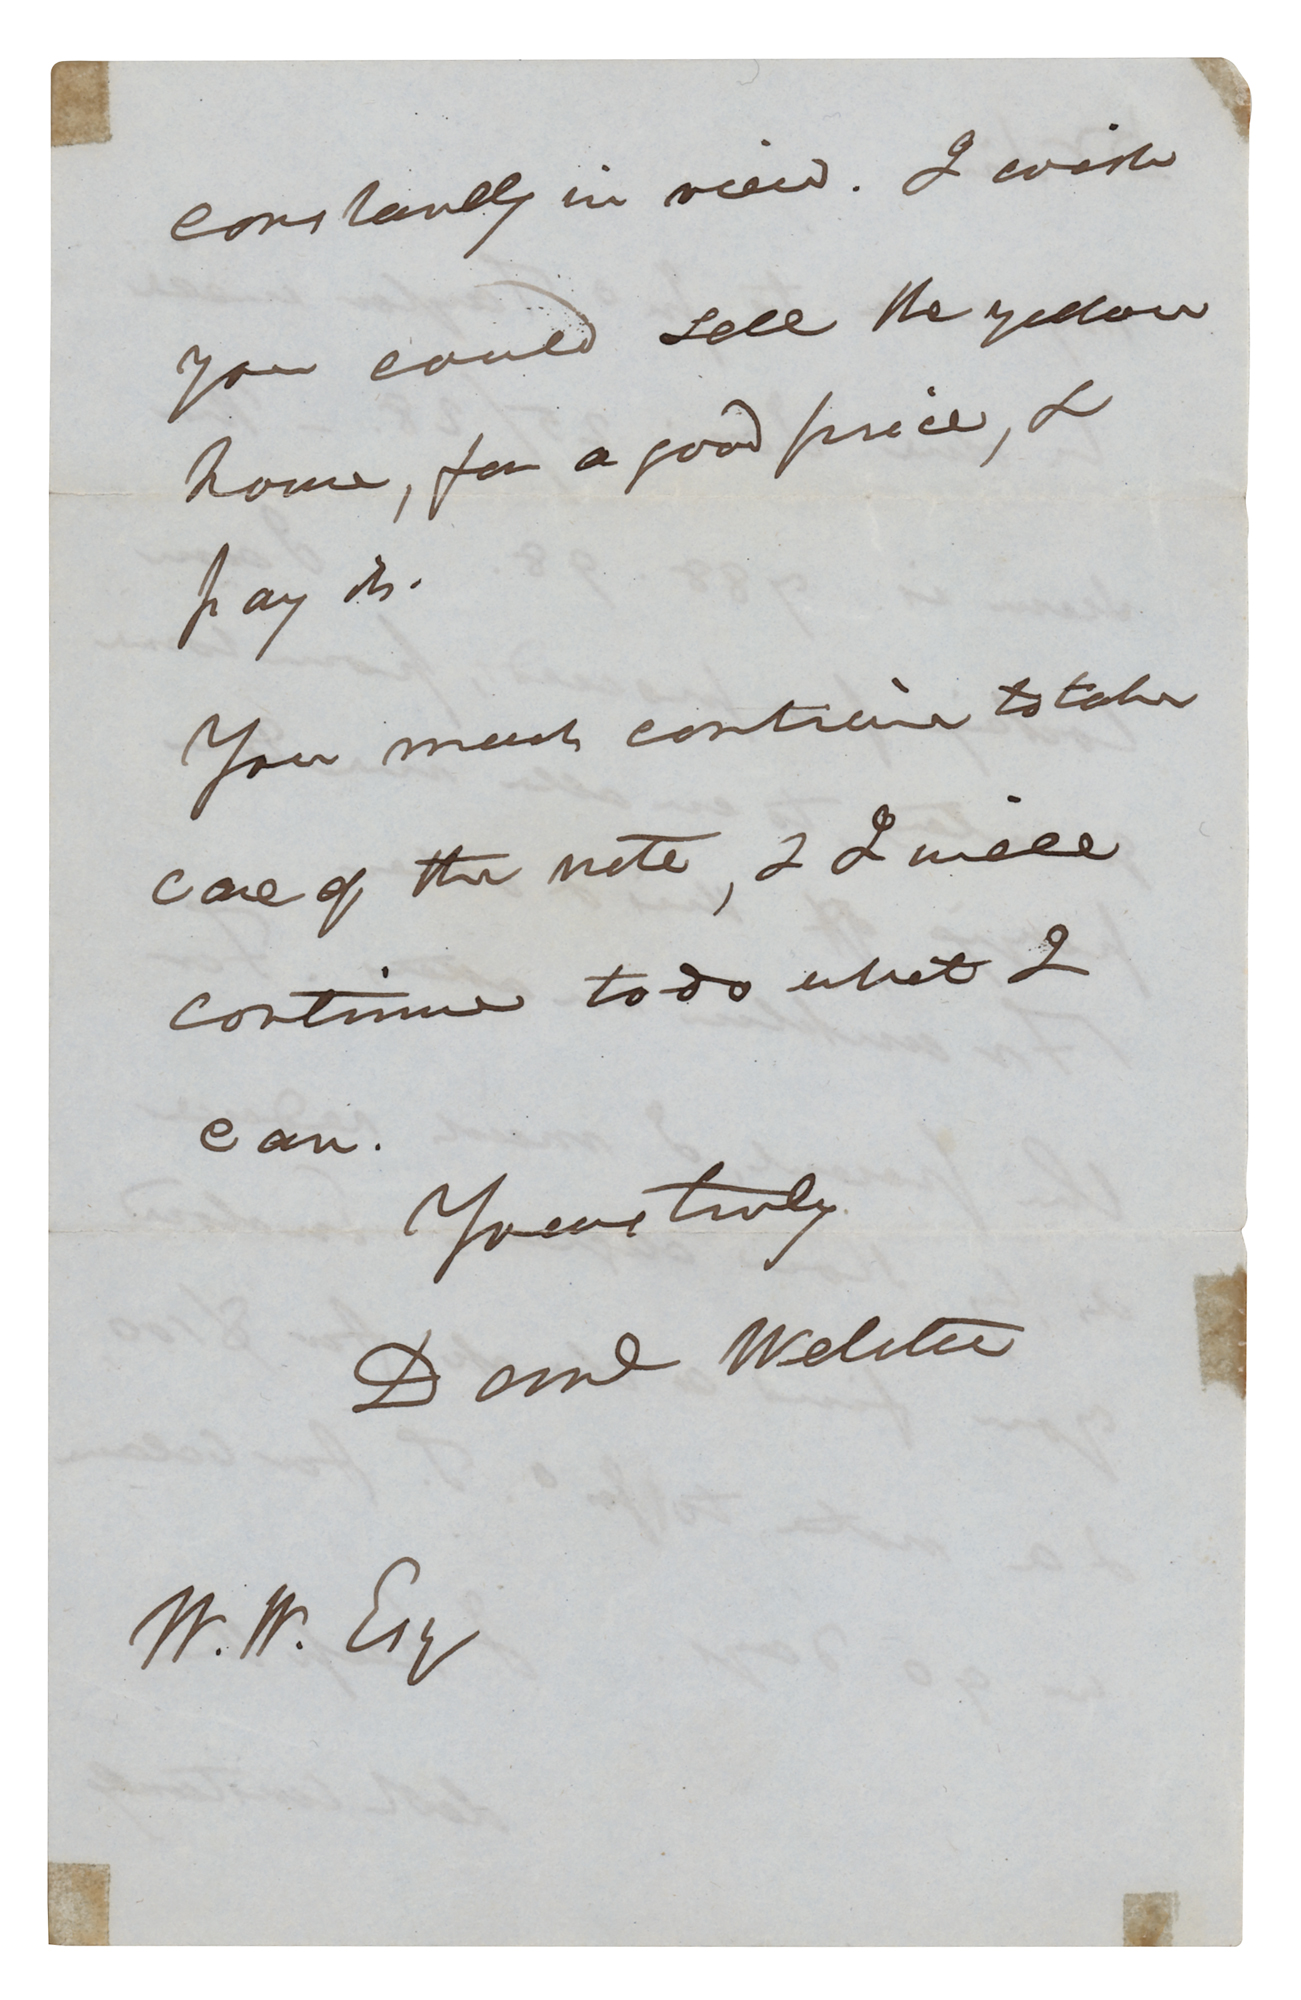 constantly in view. I wish
you could sell the yellow
house, for a good price, &
pay it.
You must continue to take
care of the note, & I will
continue to do what I
can.
Yours truly
Danl Webster
W. W. Esq